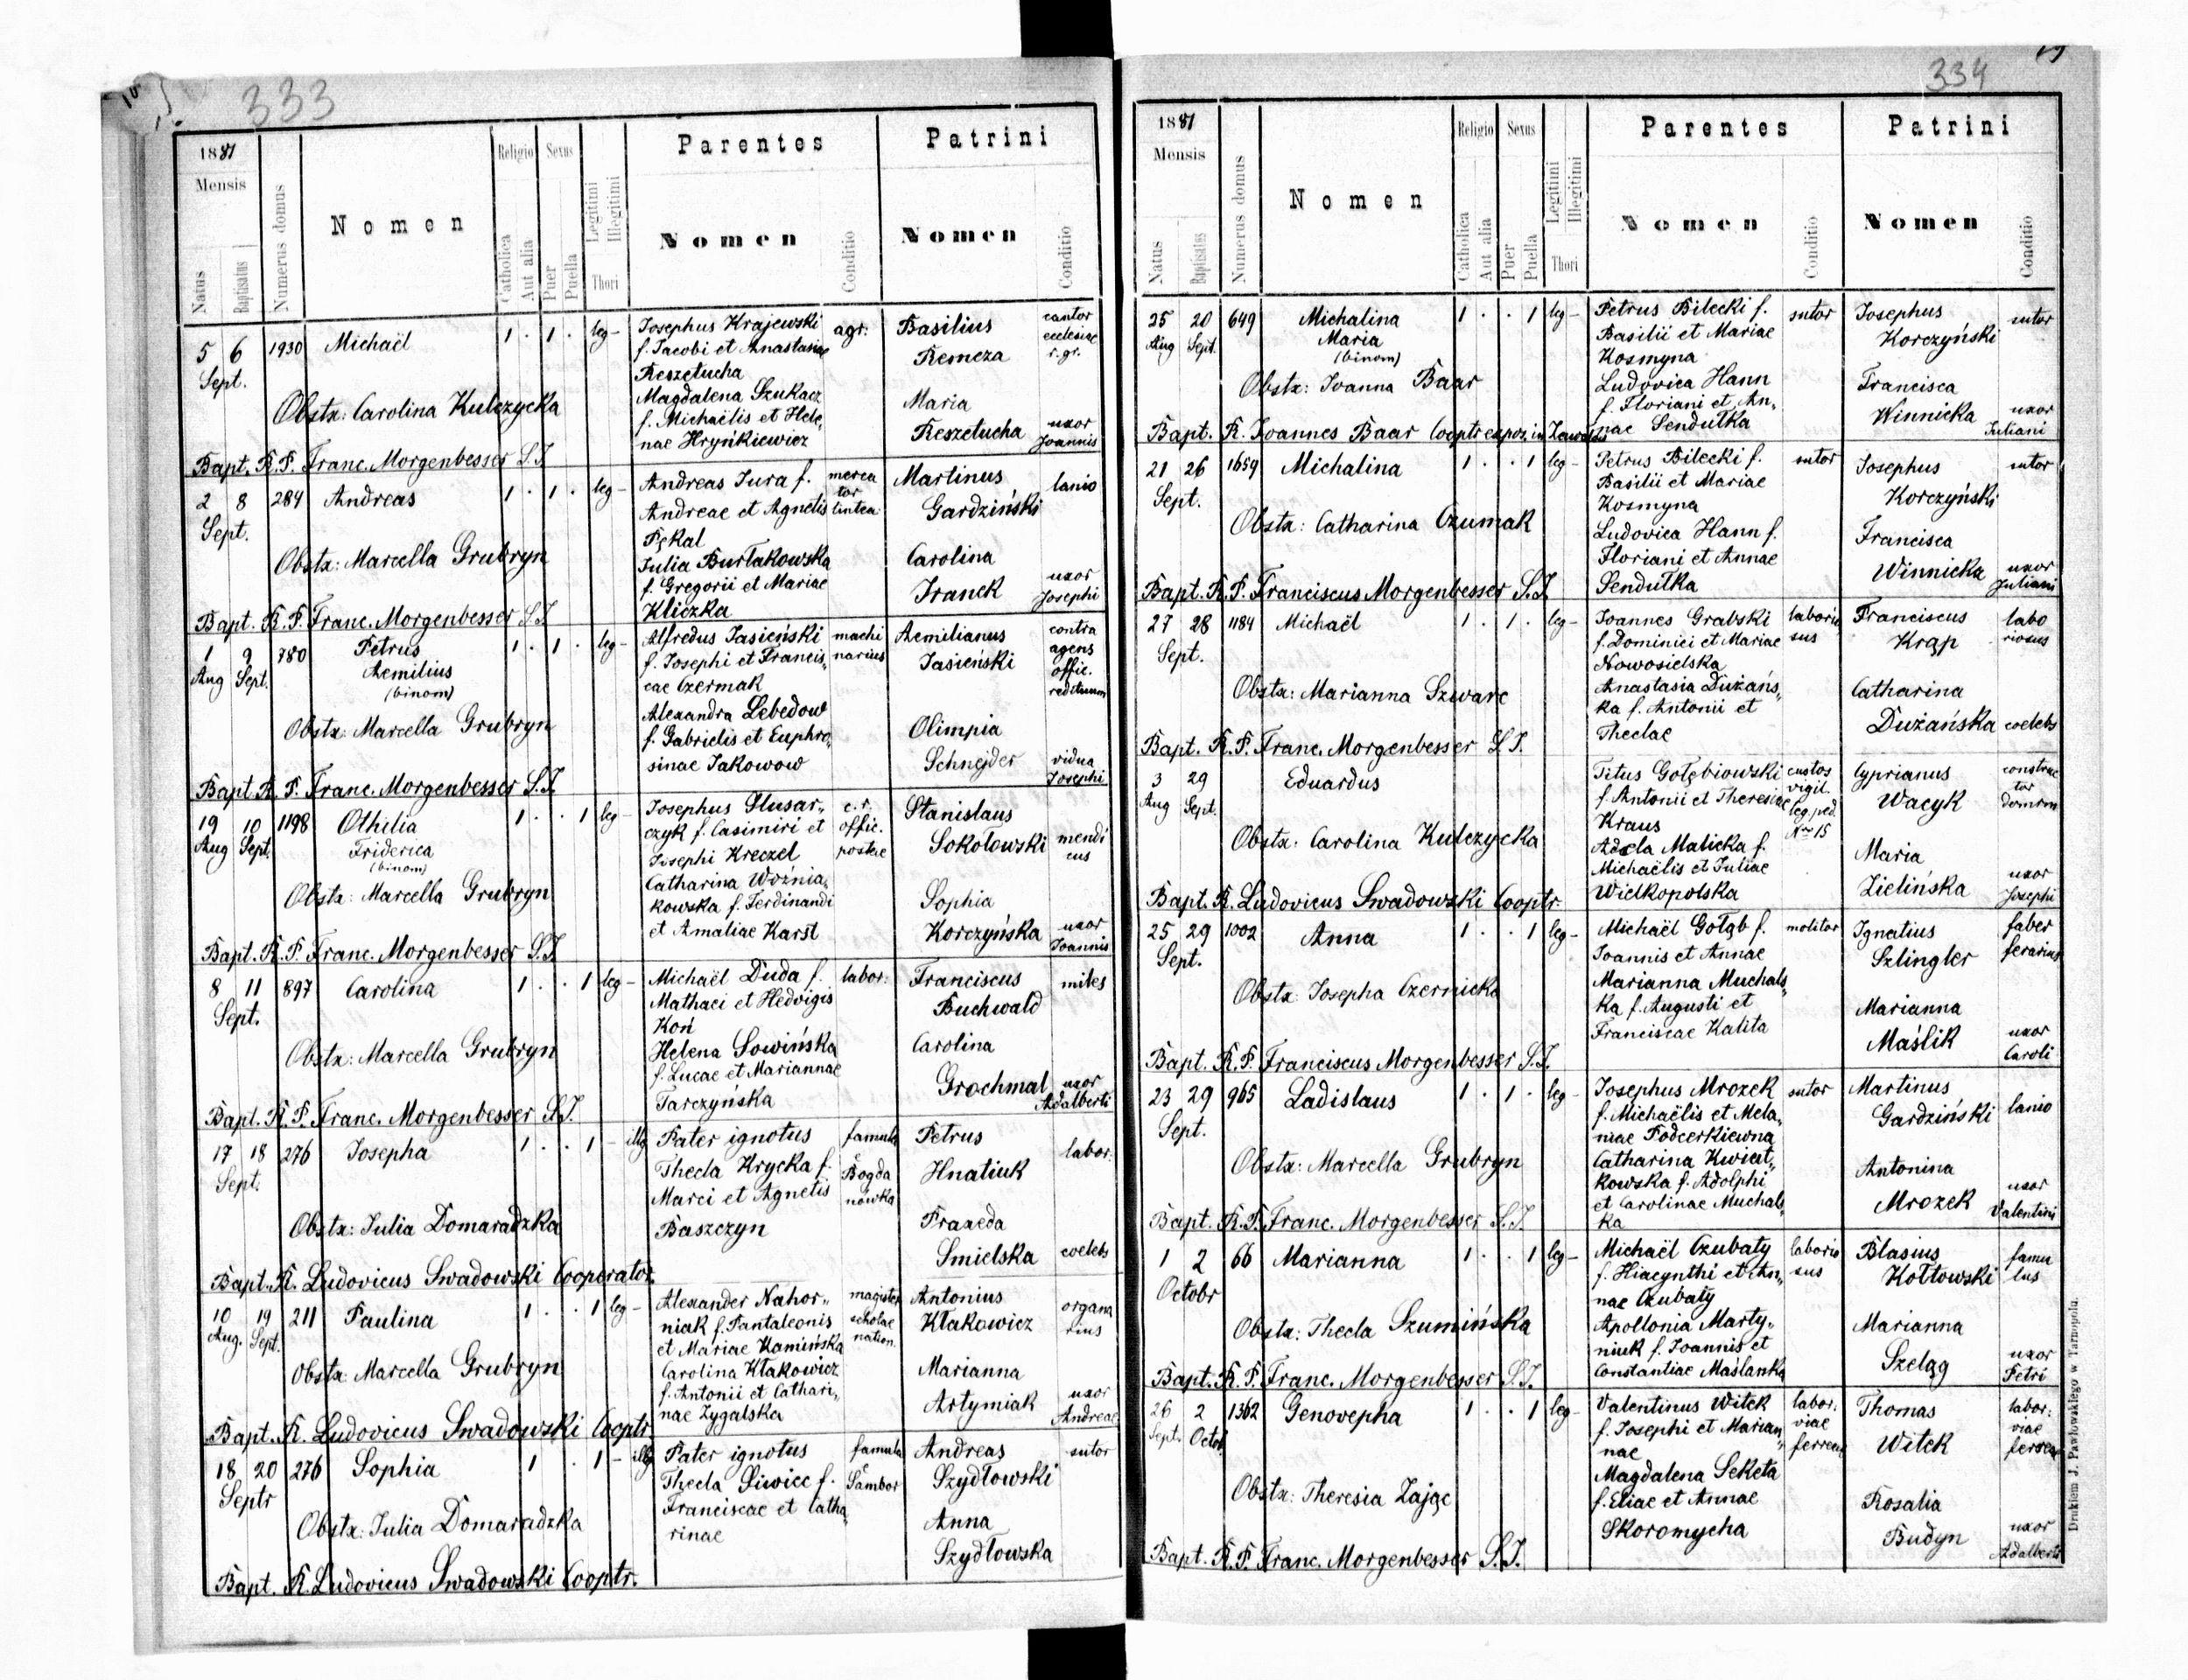 333
1881
Mensis
Natus
Baptisatus
Numerus domus
Nomen
Religio
Catholica
Aut alia
Sexus
Puer
Puella
Legitimi
Illegitimi
Thori
Parentes
Nomen
Conditio
Patrini
Nomen
Conditio
5 6 1930 Michaël 1 . 1 . leg-
Sept.
Josephus Krajewski agr:
f. Jacobi et Anastasiae
Reszetucha
Magdalena Szukacz
f. Michaëlis et Hele,,
nae Hryńkiewicz
Basilius cantor
Remeza ecclesiae
r. gr.
Maria
Reszetucha uxor
Joannis
Obstx: Carolina Kulczycka
Bapt. R. P. Franc. Morgenbesser S.J
2 8 284 Andreas 1 . 1 . leg-
Sept.
Andreas Jura f. merca
Andreae et Agnetis tor
Pękal lintea:
Julia Burłakowska
f. Gregorii et Mariae
Kliczka
Martinus lanio
Gardziński
Carolina
Iranek uxor
Josephi
Obstx: Marcella Grubryn
Bapt. R. P. Franc. Morgenbesser S.J
1 9 780 Petrus 1 . 1 . leg-
Aug Sept. Aemilius
(binom)
Alfredus Jasieński machi
f. Josephi et Francis, narius
cae Czermak
Alexandra Lebedow
f. Gabrielis et Euphro,
sinae Jakowow
Aemilianus contra
Jasieński agens
offic.
redituum
Olimpia
Schnejder vidua
Josephi
Obstx: Marcella Grubryn
Bapt R. P. Franc. Morgenbesser S.J.
19 10 1198 Othilia 1 . . 1 leg-
Aug Sept. Friderica
(binom)
Josephus Slusar,, c. r.
czyk f. Casimiri et offic.
Josephi Kreczel postae
Catharina Woźnia,
kowska f. Ferdinandi
et Amaliae Karst
Stanislaus
Sokołowski mendi
cus
Sophia
Korczyńska uxor
Joannis
Obstx: Marcella Grubryn
Bapt. R. P. Franc. Morgenbesser S.J
8 11 897 Carolina 1 . . 1 leg-
Sept.
Michaël Duda f. labor:
Mathaei et Hedvigis
Koń
Helena Sowińska
f. Lucae et Mariannae
Tarczyńska
Franciscus miles
Buchwald
Carolina
Grochmal uxor
Adalberti
Obstx: Marcella Grubryn
Bapt. R. P. Franc. Morgenbesser S.J.
17 18 276 Josepha 1 . . 1 - illg
Sept.
Pater ignotus famula
Thecla Krycka f. e Bogda
Marci et Agnetis nówka
Baszczyn
Petrus labor:
Hnatiuk
Praxeda
Smielska coelebs
Obstx: Julia Domaradzka
Bapt. R. Ludovicus Swadowski Cooperator.
10 19 211 Paulina 1 . . 1 leg-
Aug. Sept.
Alexander Nahor,, magister
niak f. Pantaleonis scholae
et Mariae Kamińska nation.
Carolina Kłakowicz
f. Antonii et Cathari,
nae Zygalska
Antonius organa
Kłakowicz rius
Marianna
Artymiak uxor
Andreae
Obstx: Marcella Grubryn
Bapt. R. Ludovicus Swadowski Cooptr.
18 20 276 Sophia 1 . 1 - illg
Septr
Pater ignotus famula
Thecla Siwiec f. e Sambor
Franciscae et Catha,
rinae
Andreas sutor
Szydłowski
Anna
Szydłowska
Obstx: Julia Domaradzka
Bapt. R. Ludovicus Swadowski Cooptr.
334
1881
Mensis
Natus
Baptisatus
Numerus domus
Nomen
Religio
Catholica
Aut alia
Sexus
Puer
Puella
Legitimi
Illegitimi
Thori
Parentes
Nomen
Conditio
Patrini
Nomen
Conditio
25 20 649 Michalina 1 . . 1 leg-
Aug Sept. Maria
(binom)
Petrus Bilecki f. sutor
Basilii et Mariae
Kosmyna
Ludovica Hann
f. Floriani et An,,
nae Sendutka
Josephus sutor
Korczyński
Francisca
Winnicka uxor
Juliani
Obstx: Joanna Baar
Bapt. R. Joannes Baar Cooptr expos. in
21 26 1659 Michalina 1 . . 1 leg-
Sept.
Petrus Bilecki f. sutor
Basilii et Mariae
Kosmyna
Ludovica Hann f.
Floriani et Annae
Sendutka
Josephus sutor
Korczyński
Francisca
Winnicka uxor
Juliani
Obstx: Catharina Czumak
Bapt. R. P. Franciscus Morgenbesser S.J.
27 28 1184 Michaël 1 . 1 . leg-
Sept.
Joannes Grabski laborio
f. Dominici et Mariae sus
Nowosielska
Anastasia Dużańs,,
ka f. Antonii et
Theclae
Franciscus labo
Krąp riosus
Catharina
Dużańska coelebs
Obstx: Marianna Szwarc
Bapt. R. P. Franc. Morgenbesser S.J.
3 29 Eduardus
Aug Sept.
Titus Gołębiowski custos
f. Antonii et Theresiae vigil.
Kraus leg. ped.
Adela Malicka f. Nro 15
Michaëlis et Juliae
Wielkopolska
Cyprianus construc
Wacyk tor
domorum
Maria
Zielińska uxor
Josephi
Obstx: Carolina Kulczycka
Bapt. R. Ludovicus Swadowski Cooptr.
25 29 1002 Anna 1 . . 1 leg-
Sept.
Michaël Gołąb f. molitor
Joannis et Annae
Marianna Muchals,
ka f. Augusti et
Franciscae Kalita
Ignatius faber
Szlingler ferarius
Marianna
Maślik uxor
Caroli
Obstx: Josepha Czernicka
Bapt. R. P. Franciscus Morgenbesser S.J.
23 29 965 Ladislaus 1 . 1 . leg-
Sept.
Josephus Mrozek sutor
f. Michaëlis et Mela,
niae Podcerkiewna
Catharina Kwiat,,
kowska f. Adolphi
et Carolinae Muchals,
ka
Martinus
Gardziński lanio
Antonina
Mrozek uxor
Valentini
Obstx: Marcella Grubryn
Bapt. R. P. Franc. Morgenbesser S.J.
1 2 66 Marianna 1 . . 1 leg-
Octobr
Michaël Czubaty laborio
f. Hiacynthi et An,, sus
nae Czubaty
Apollonia Marty,,
niuk f. Joannis et
Constantiae Maślanka
Blasius famu
Kołtowski lus
Marianna
Szeląg uxor
Petri
Obstx: Thecla Szumińska
Bapt. R. P. Franc. Morgenbesser S.J.
26 2 1362 Genovepha 1 . . 1 leg-
Sept. Octob.
Valentinus Witek labor:
f. Josephi et Marian, viae
nae ferreae
Magdalena Seketa
f. Eliae et Annae
Skoromycha
Thomas labor:
Witek viae
ferreae
Rosalia
Budyn uxor
Adalberti
Obstx: Theresia Zając
Bapt. R. P. Franc. Morgenbesser S.J.
Drukiem J. Pawłowskiego w Tarnopolu.